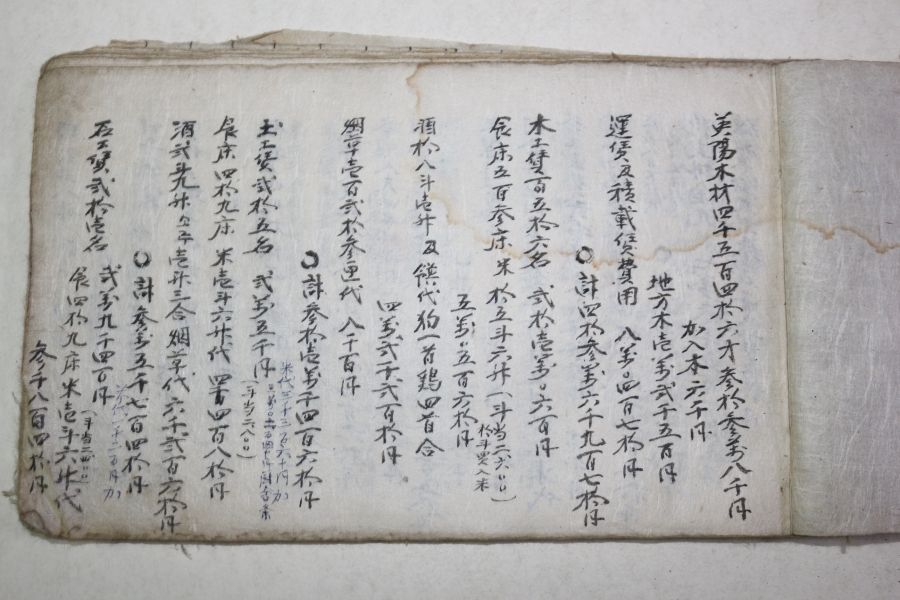 英陽木材四千五百四拾六才参拾参萬八千円
加入木六千円
地方木壱萬弐千五百円
運賃及積載賃費用 八萬〇四百七拾円
〇計四拾参萬六千九百七拾円
木工賃百五拾六名 弐拾壱萬〇六百円
食床五百参床 米拾五斗六升(斗当二六〇〇)
五萬〇五百六拾円
酒拾八斗壱升及饌代狗一首鶏四首合
四萬弐千弐百拾円
烟草壱百弐拾参匣代 八千百円
〇計参拾壱萬千四百六拾円
土工賃弐拾五名 弐萬五千円
食床四拾九床 米壱斗六升代 四千四百八拾円
(斗当二八〇〇)
酒弐斗九升 壱升三合 烟草代六千弐百六拾円
〇計参萬五千七百四拾円
石工賃弐拾壱名 弐萬九千四百円
食四拾九床米壱斗六升代
参千八百四拾円